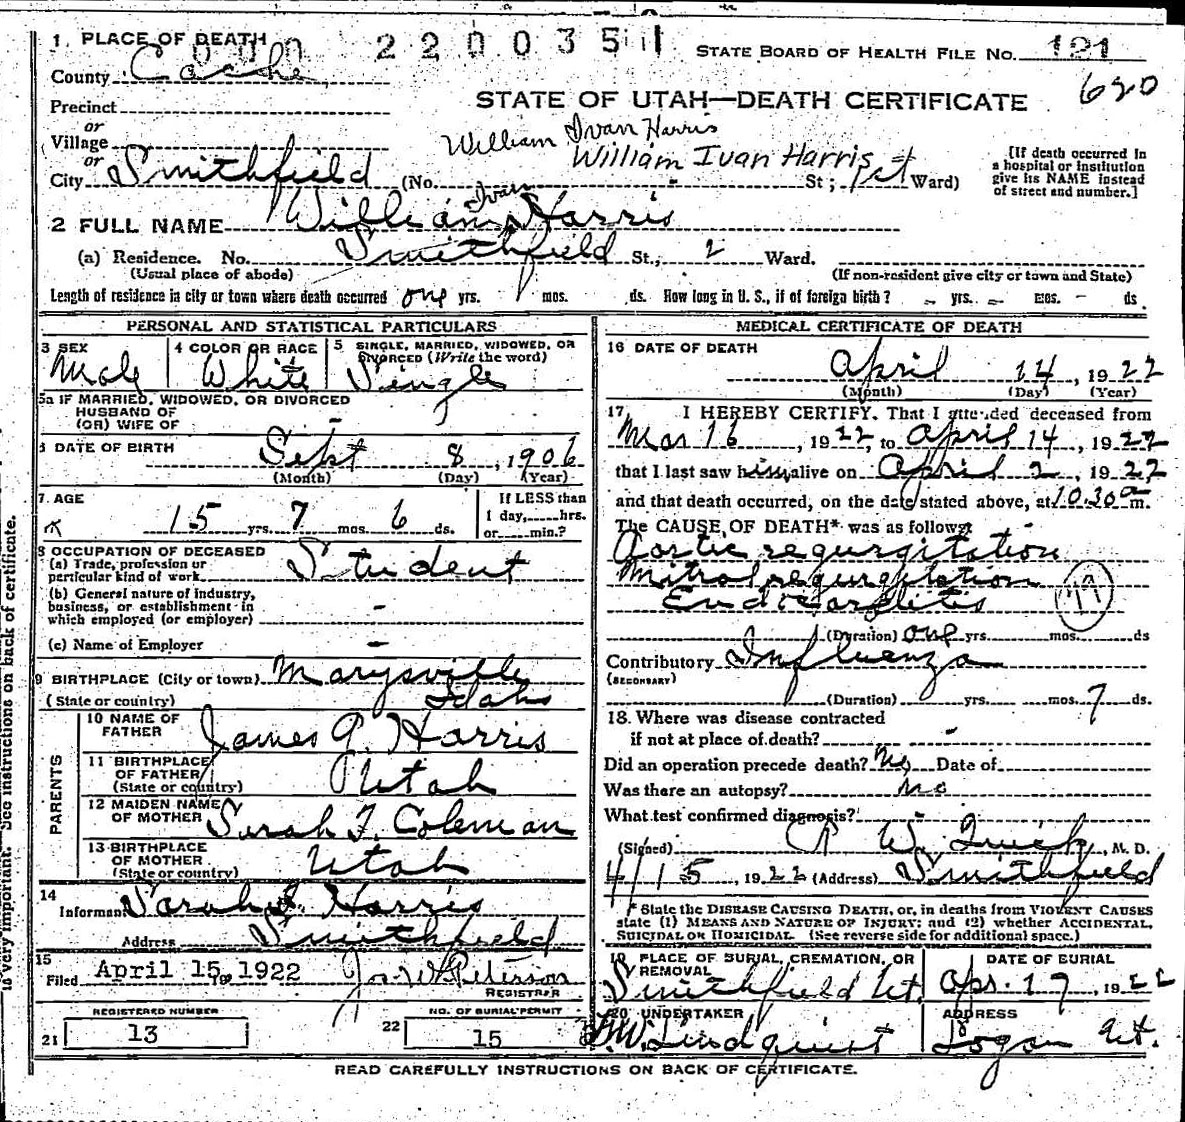 1 PLACE OF DEATH
2200351
STATE BOARD OF HEALTH FILE NO. 121
County Cache
620
Precinct
STATE OF UTAH—DEATH CERTIFICATE
or
Village
William Ivan Harris
William Ivan Harris
or
City Smithfield (No. - St; 1st Ward)
[If death occurred in a hospital or institution give its NAME instead of street and number.]
Ivan
2 FULL NAME William Harris
(a) Residence. No. Smithfield St., 2 Ward.
(Usual place of abode) (If non-resident give city or town and State)
Length of residence in city or town where death occurred one yrs. mos. ds. How long in U. S., if of foreign birth? - yrs. - mos. - ds
PERSONAL AND STATISTICAL PARTICULARS
3 SEX
Male
4 COLOR OR RACE
White
5 SINGLE, MARRIED, WIDOWED, OR
DIVORCED (Write the word)
Single
5a IF MARRIED, WIDOWED, OR DIVORCED
HUSBAND OF
(OR) WIFE OF -
6 DATE OF BIRTH Sept 8, 1906
(Month) (Day) (Year)
7. AGE
15 yrs. 7 mos. 6 ds.
If LESS than
1 day,.....hrs.
or.....min.?
8 OCCUPATION OF DECEASED
(a) Trade, profession or
particular kind of work Student
(b) General nature of industry,
business, or establishment in
which employed (or employer) -
(c) Name of Employer -
9 BIRTHPLACE (City or town) Marysville
(State or country) Idaho
PARENTS
10 NAME OF
FATHER James G. Harris
11 BIRTHPLACE
OF FATHER
(State or country) Utah
12 MAIDEN NAME
OF MOTHER Sarah F. Coleman
13 BIRTHPLACE
OF MOTHER
(State or country) Utah
14
Informant Sarah Harris
Address Smithfield
15
Filed April 15, 1922 Jos. W. Peterson
REGISTRAR
REGISTERED NUMBER
21 13
NO. OF BURIAL PERMIT
22 15
MEDICAL CERTIFICATE OF DEATH
16 DATE OF DEATH
April 14, 1922
(Month) (Day) (Year)
17 I HEREBY CERTIFY, That I attended deceased from
Mar 16, 1922, to April 14, 1922
that I last saw him alive on April 2, 1922
and that death occurred, on the date stated above, at 10.30 a m.
The CAUSE OF DEATH* was as follows:
Aortic regurgitation
Mitral regurgitation
Endocarditis
(Duration) one yrs. mos. ds
Contributory Influenza
(SECONDARY)
(Duration) yrs. mos. 7 ds.
18. Where was disease contracted
if not at place of death? -
Did an operation precede death? No Date of
Was there an autopsy? no
What test confirmed diagnosis?
(Signed) W. Quick, M. D.
4/15, 1922 (Address) Smithfield
* State the DISEASE CAUSING DEATH, or, in deaths from VIOLENT CAUSES
state (1) MEANS AND NATURE OF INJURY; and (2) whether ACCIDENTAL,
SUICIDAL OR HOMICIDAL. (See reverse side for additional space.)
19 PLACE OF BURIAL, CREMATION, OR
REMOVAL
Smithfield Ut.
DATE OF BURIAL
Apr. 17, 1922
20 UNDERTAKER
Lindquist
ADDRESS
Logan Ut.
READ CAREFULLY INSTRUCTIONS ON BACK OF CERTIFICATE.
is very important. See instructions on back of certificate.